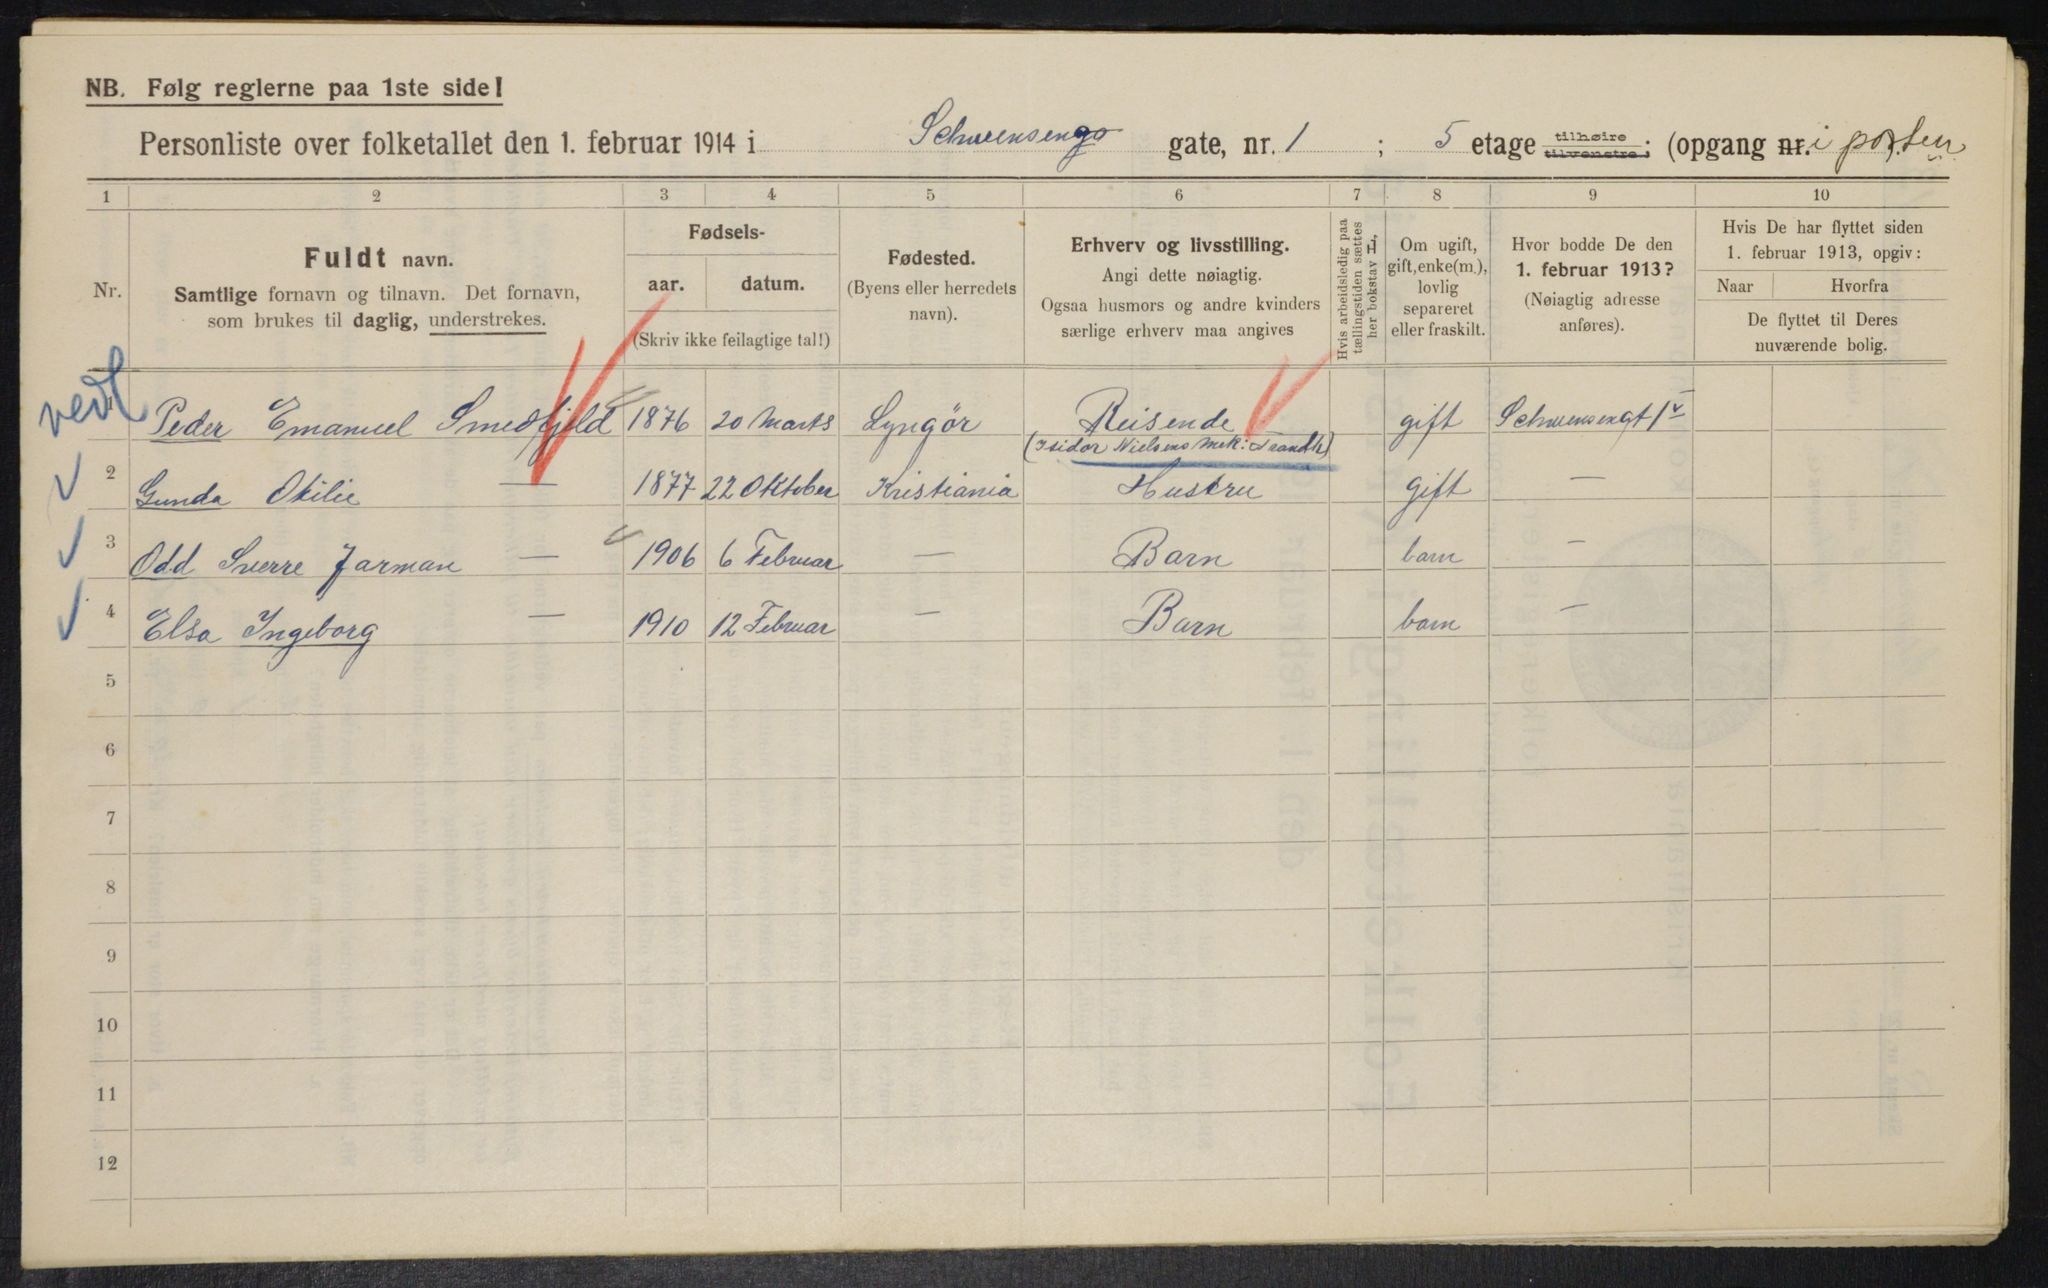 NB. Følg reglerne paa 1ste side!
Personliste over folketallet den 1. februar 1914 i Schwensengo gate, nr. 1 ; 5 etage tilhøire tilvenstre; (opgang nr. i porten
1 2 3 4 5 6 7 8 9 10
Nr.
Fuldt navn.
Samtlige fornavn og tilnavn. Det fornavn,
som brukes til daglig, understrekes.
Fødsels-
aar. datum.
(Skriv ikke feilagtige tal!)
Fødested.
(Byens eller herredets
navn).
Erhverv og livsstilling.
Angi dette nøiagtig.
Ogsaa husmors og andre kvinders
særlige erhverv maa angives
Hvis arbeidsledig paa
tællingstiden sættes
her bokstav L.
Om ugift,
gift, enke(m.),
lovlig
separeret
eller fraskilt.
Hvor bodde De den
1. februar 1913?
(Nøiagtig adresse
anføres).
Hvis De har flyttet siden
1. februar 1913, opgiv:
Naar Hvorfra
De flyttet til Deres
nuværende bolig.
vedl Peder Emanuel Smedfjeld 1876 20 Marts Lyngör Reisende gift Schwensengt 1 v
(Isidor Nielsens Mek: Trondh)
2 Gunda Otilie — 1877 22 Oktober Kristiania Hustru gift —
3 Odd Sverre Jarman — 1906 6 Februar — Barn barn —
4 Elsa Ingeborg — 1910 12 Februar — Barn barn —
5
6
7
8
9
10
11
12